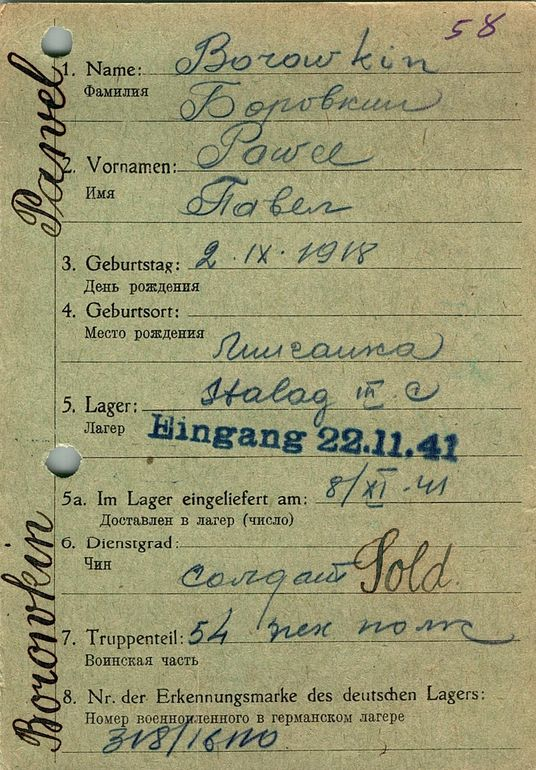 58
1. Name: Borowkin
Фамилия Боровкин
2. Vornamen: Pawel
Имя Павел
3. Geburtstag: 2. IX. 1918
День рождения
4. Geburtsort:
Место рождения
5. Lager: Stalag III C
Лагерь
Eingang 22.11.41
5a. Im Lager eingeliefert am: 8/XI-41
Доставлен в лагерь (число)
6. Dienstgrad:
Чин солдат Sold.
7. Truppenteil: 54 пех полк
Воинская часть
8. Nr. der Erkennungsmarke des deutschen Lagers:
Номер военнопленного в германском лагере
Borowkin Pawel